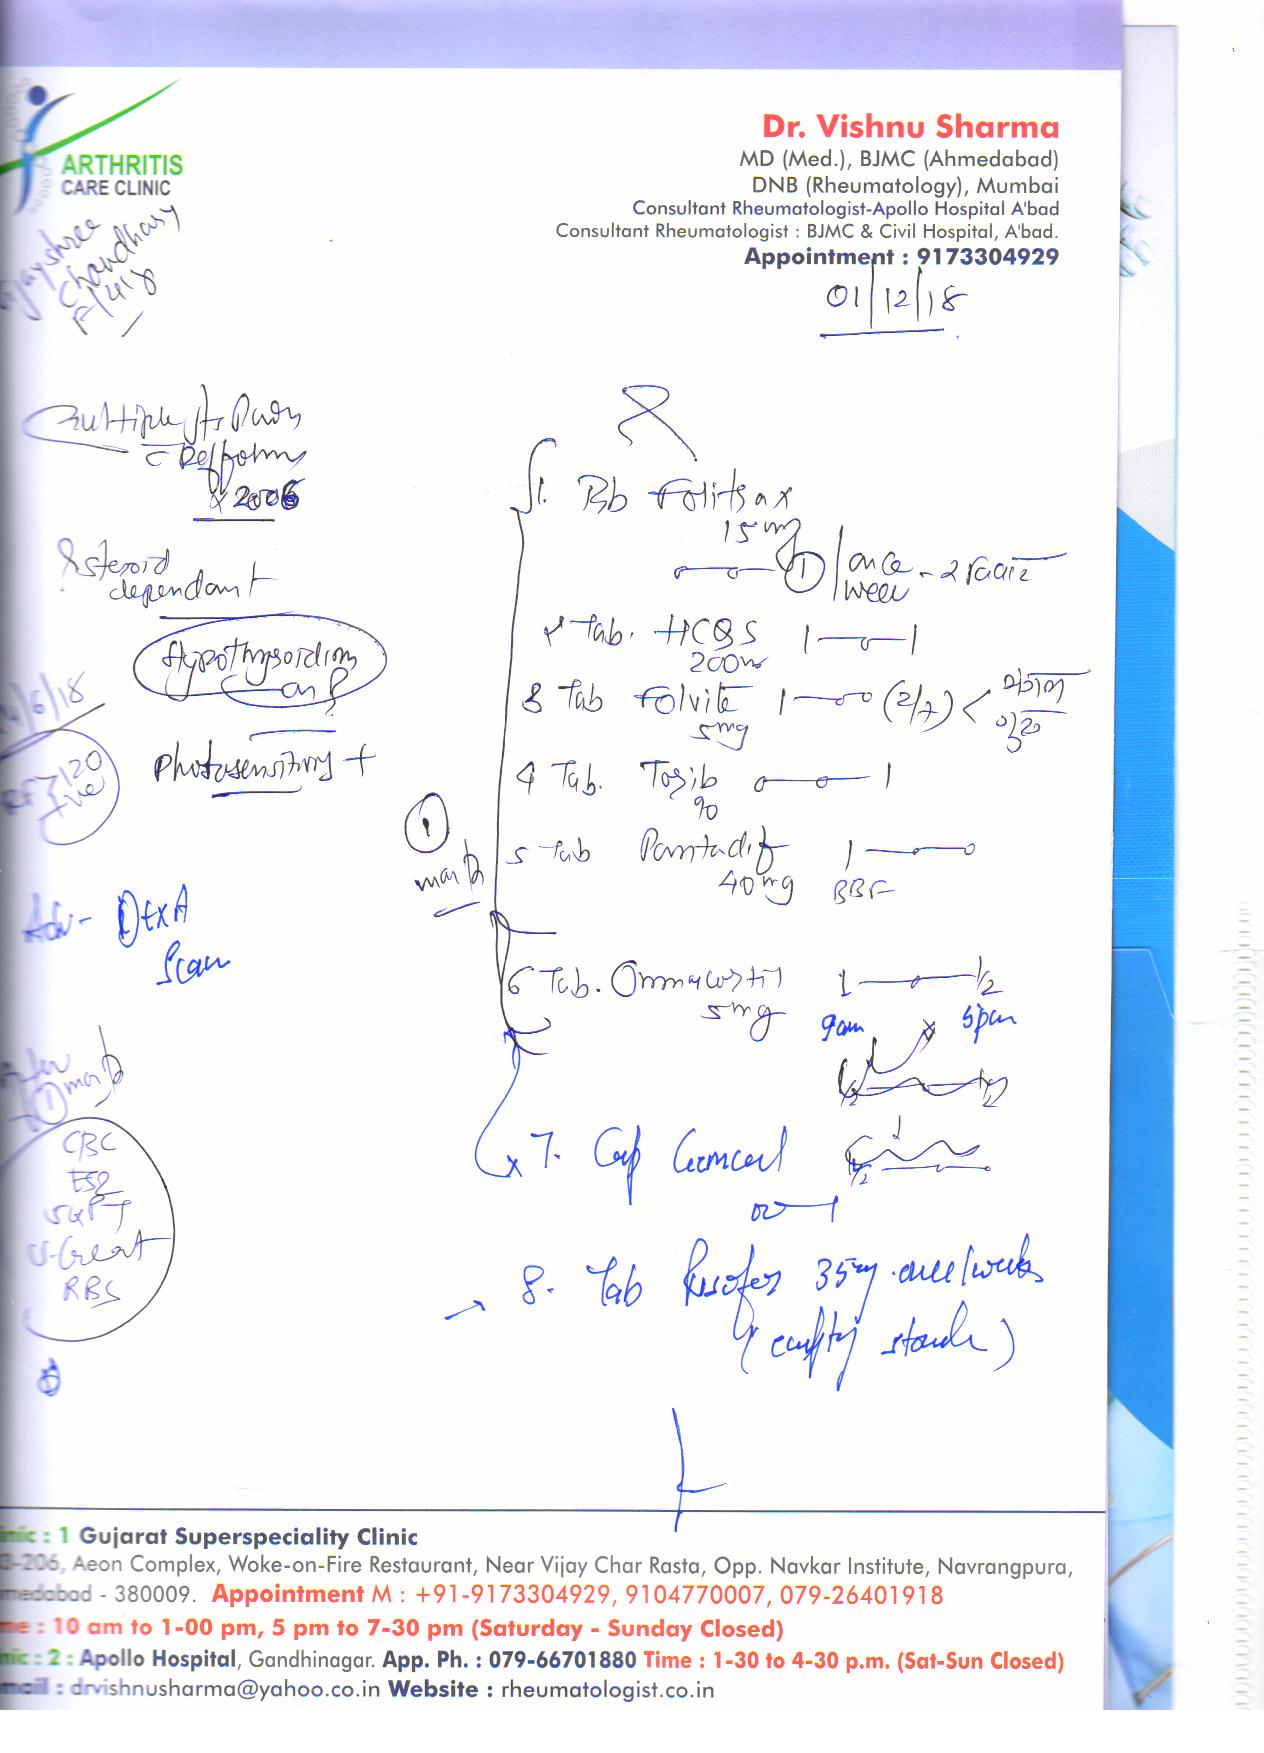 ARTHRITIS
CARE CLINIC
Dr. Vishnu Sharma
MD (Med.), BJMC (Ahmedabad)
DNB (Rheumatology), Mumbai
Consultant Rheumatologist-Apollo Hospital A'bad
Consultant Rheumatologist : BJMC & Civil Hospital, A'bad.
Appointment : 9173304929
Jayshree
Chaudhary
01/12/18
Multiple
x 2006
steroid
dependant
Hypothyroidism
on
/6/18
RF 7120
+ve
Photosensitivity +
Adv - DEXA
Scan
1 month
CBC
ESR
SGPT
S.Creat
RBS
1 month
1. Tab Folitrax
15 mg
1/once
week -
2 Tab. HCQS 1 — o — 1
200
3 Tab Folvite 1 — o (2/7) <
5mg
4 Tab. Tozib o — o — 1
90
5 Tab Pantadif 1 — o
40 mg BBF
6 Tab. Omnacortil 1 — 1/2
5 mg 9am 5pm
7. Cap Gemcal
8. Tab Risofos 35mg once/week
(empty stomach)
Clinic : 1 Gujarat Superspeciality Clinic
-206, Aeon Complex, Woke-on-Fire Restaurant, Near Vijay Char Rasta, Opp. Navkar Institute, Navrangpura,
Ahmedabad - 380009. Appointment M : +91-9173304929, 9104770007, 079-26401918
Time : 10 am to 1-00 pm, 5 pm to 7-30 pm (Saturday - Sunday Closed)
Clinic : 2 : Apollo Hospital, Gandhinagar. App. Ph. : 079-66701880 Time : 1-30 to 4-30 p.m. (Sat-Sun Closed)
Email : drvishnusharma@yahoo.co.in Website : rheumatologist.co.in